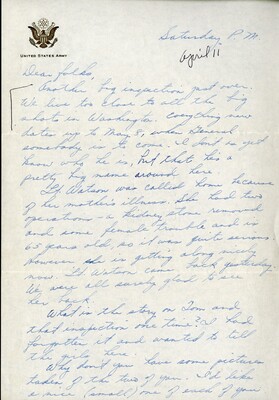 UNITED STATES ARMY
Saturday P.M.
April 11
Dear folks,
Another big inspection just over.
We live too close to all the big
shots in Washington. Everything now
dates up to May 5, when General
somebody is to come. I don't as yet
know who he is, but thats has a
pretty big name around here.
Lt Watson was called home because
of her mothers illness. She had two
operations - a kidney stone removed
and some female trouble and is
65 years old, so it was quite serious
however she is getting along fine
now. Lt Watson came back yesterday
We were all surely glad to see
her back.
What is the story on Tom and
that inspection one time? I had
forgotten it and wanted to tell
the girls here.
Why don't you have some pictures
taken, of the two of you. I'd like
a nice (small) one of each of you